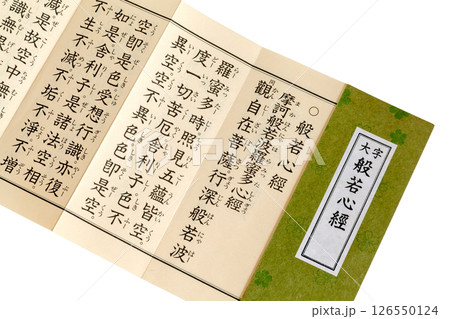 大字 般若心經
〇 般若心經
摩訶般若波羅蜜多心經
觀自在菩薩行深般若波
羅蜜多時照見五蘊皆空
度一切苦厄舍利子色不
異空空不異色色即是空
空即是色受想行識亦復
如是舍利子是諸法空相
生不滅不垢不淨不增
減是故空中無
識無
126550124